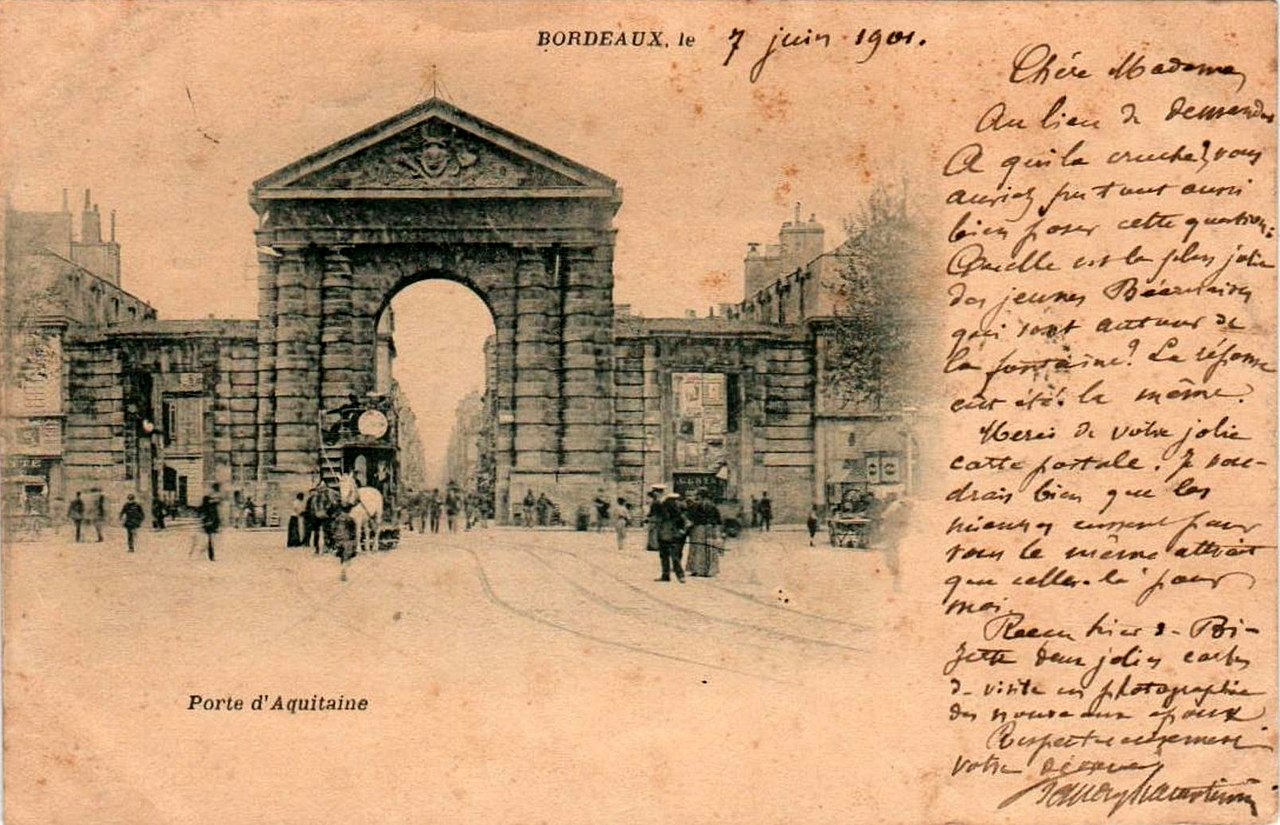 BORDEAUX, le 7 juin 1901.
Chère Madame,
Au lieu de demander
A qui la cruche?, vous
auriez pu tout aussi
bien poser cette question:
Quelle est la plus jolie
des jeunes Béarnaises
qui sont autour de
la fontaine? La réponse
eut été la même.
Merci de votre jolie
carte postale. Je vou-
drais bien que les
miennes eussent pour
vous le même attrait
que celles-là pour
moi.
Reçu hier de Bi-
zette deux jolies cartes
de visite en photographie
des nouveaux époux
Respectueusement
votre dévoué
Porte d'Aquitaine